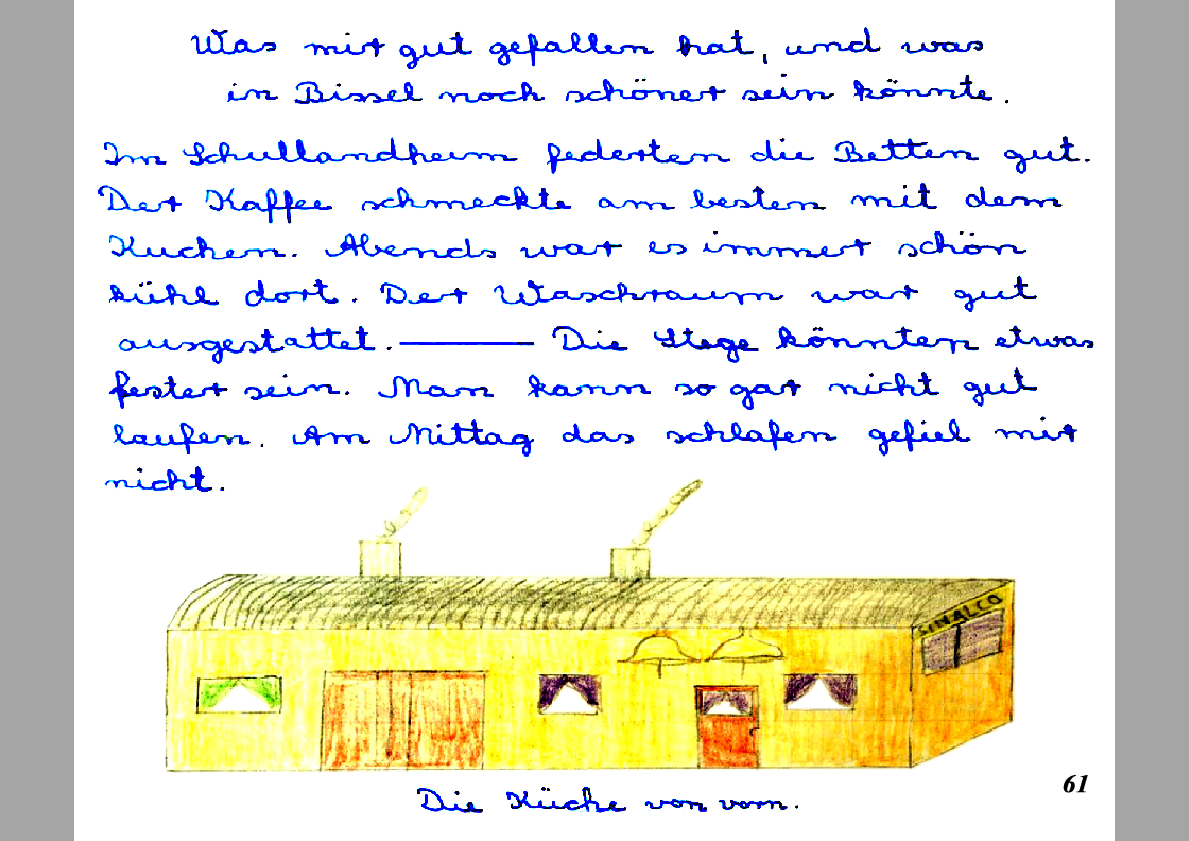 Was mir gut gefallen hat, und was
in Bissel noch schöner sein könnte.
Im Schullandheim federten die Betten gut.
Der Kaffee schmeckte am besten mit dem
Kuchen. Abends war es immer schön
kühl dort. Der Waschraum war gut
ausgestattet. ——— Die Stege könnten etwas
fester sein. Man kann so gar nicht gut
laufen. Am Mittag das schlafen gefiel mir
nicht.
SINALCO
Die Küche von vorn.
61